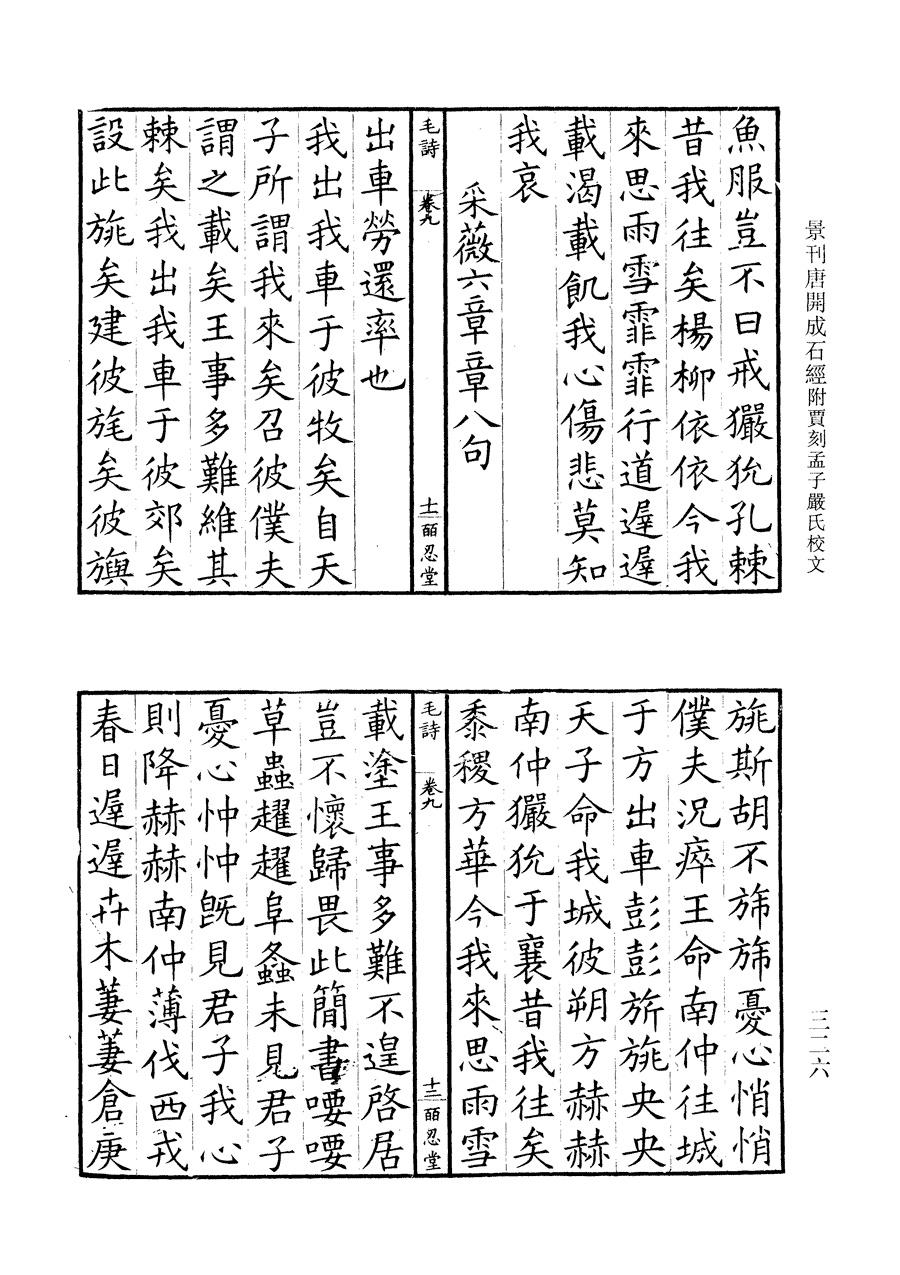 景刊唐開成石經附賈刻孟子嚴氏校文
三二六
魚服豈不日戒玁狁孔棘
昔我往矣楊柳依依今我
來思雨雪霏霏行道遟遟
載渴載飢我心傷悲莫知
我哀
采薇六章章八句
毛詩 卷九 十一 皕忍堂
出車勞還率也
我出我車于彼牧矣自天
子所謂我來矣召彼僕夫
謂之載矣王事多難維其
棘矣我出我車于彼郊矣
設此旐矣建彼旄矣彼旟
旐斯胡不旆旆憂心悄悄
僕夫況瘁王命南仲往城
于方出車彭彭旂旐央央
天子命我城彼朔方赫赫
南仲玁狁于襄昔我往矣
黍稷方華今我來思雨雪
毛詩 卷九 十二 皕忍堂
載塗王事多難不遑啓居
豈不懷歸畏此簡書喓喓
草蟲趯趯阜螽未見君子
憂心忡忡旣見君子我心
則降赫赫南仲薄伐西戎
春日遟遟卉木萋萋倉庚